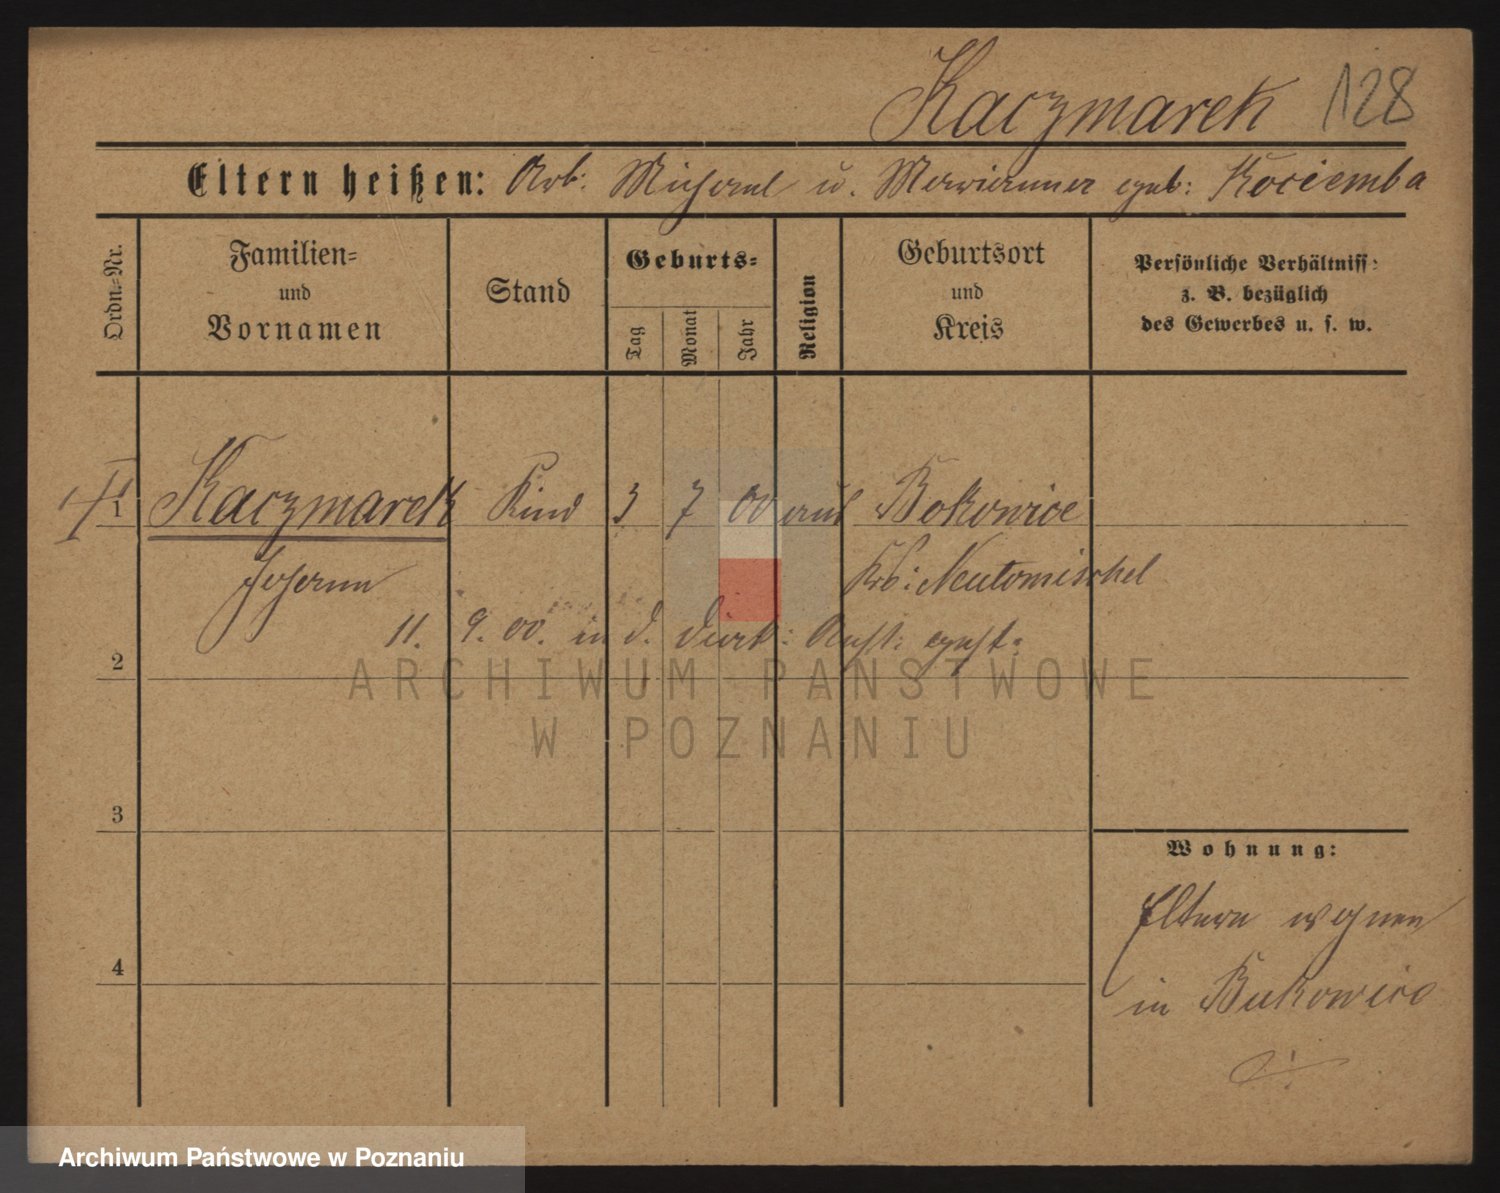 Kaczmarek 128
Eltern heißen: Arb: Michael u. Marianna geb: Kociemba
Ordn.-Nr.
Familien-
und
Vornamen
Stand
Geburts-
Tag
Monat
Jahr
Religion
Geburtsort
und
Kreis
Persönliche Verhältniss-
z. B. bezüglich
des Gewerbes u. s. w.
1 Kaczmarek Kind 3 7 00 Bukowice
Johann Krs: Neutomischel
11. 9. 00. in d. Anst: gest:
2
ARCHIWUM PAŃSTWOWE
W POZNANIU
3
Wohnung:
Eltern wohnen
4
in Bukowice
Archiwum Państwowe w Poznaniu